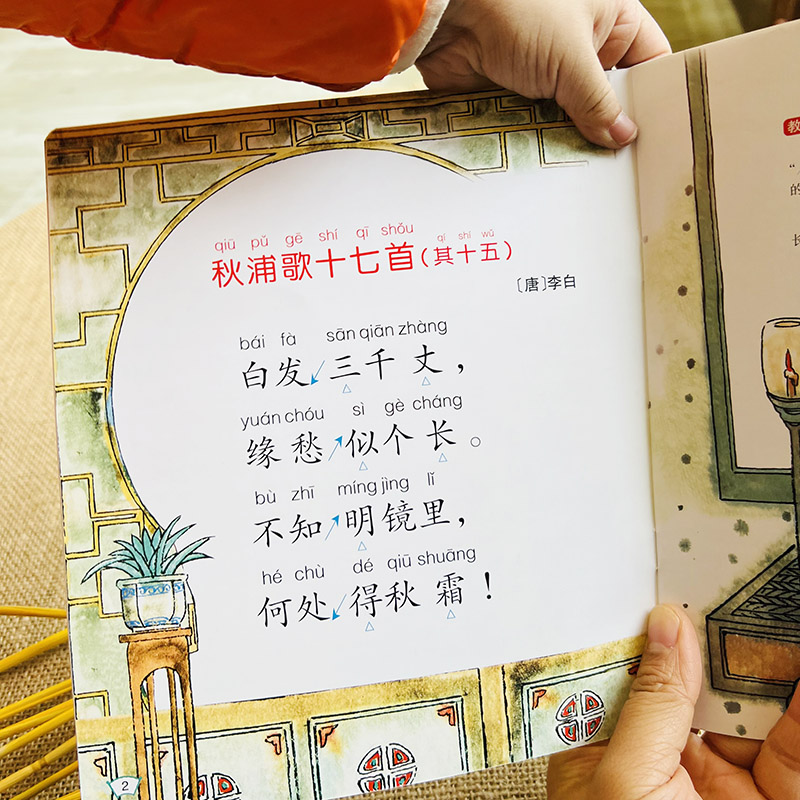 qiū pǔ gē shí qī shǒu qí shí wǔ
秋浦歌十七首(其十五)
〔唐〕李白
bái fà sān qiān zhàng
白发↙三千丈，
yuán chóu sì gè cháng
缘愁↗似个长。
bù zhī míng jìng lǐ
不知↗明镜里，
hé chù dé qiū shuāng
何处↙得秋霜！
2
教
“
的
长